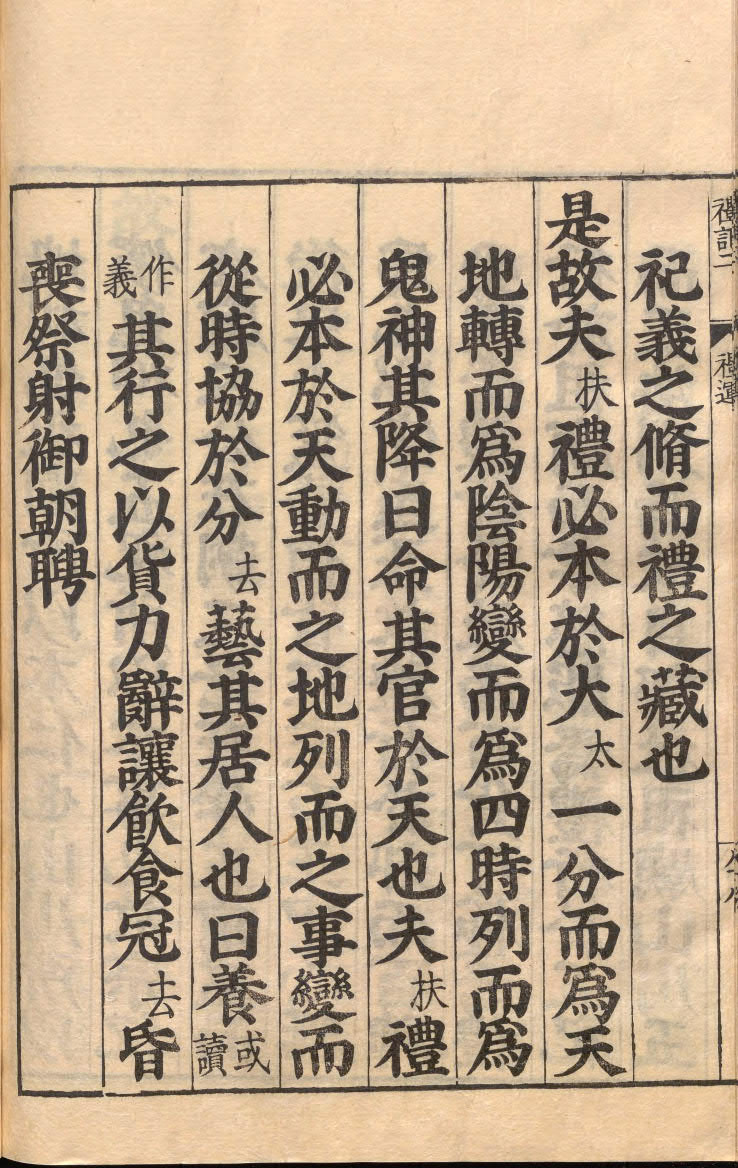 禮記二 禮運
祀義之脩而禮之藏也
是故夫扶禮必本於大太一分而爲天
地轉而爲陰陽變而爲四時列而爲
鬼神其降曰命其官於天也夫扶禮
必本於天動而之地列而之事變而
從時協於分去藝其居人也曰養或讀
作義其行之以貨力辭讓飮食冠去昏
喪祭射御朝聘